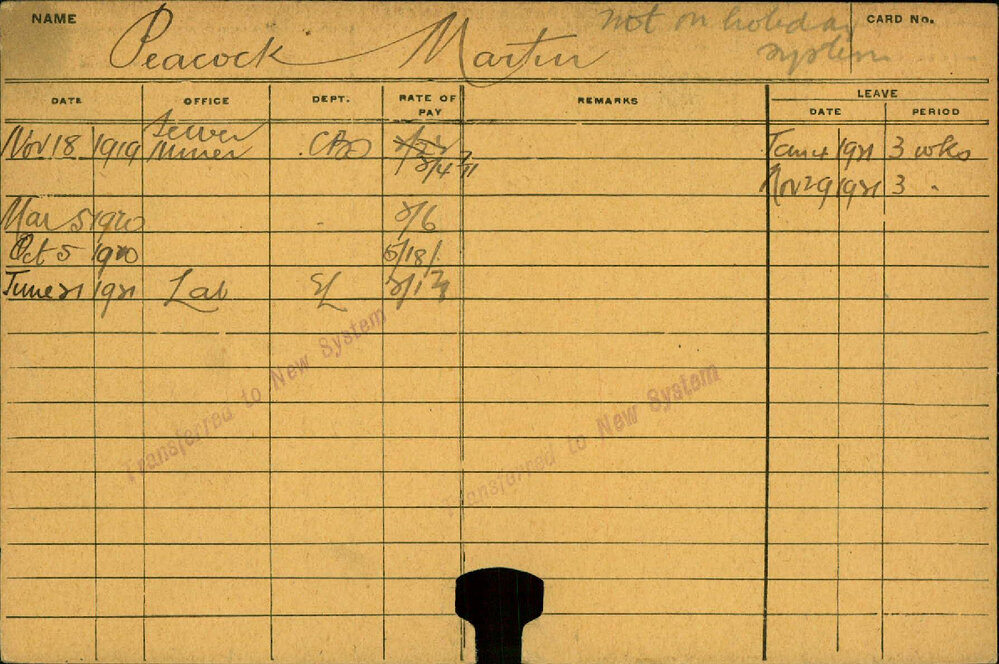 NAME Peacock Martin not on holiday CARD No.
system
DATE OFFICE DEPT. RATE OF PAY REMARKS LEAVE
DATE PERIOD
Nov 18 1919 Sewer Miner 2/4 Jan 4 1921 3 wks
Nov 29 1921 3 "
Mar 5 1920 2/6
Oct 5 1920
June 21 1921 Lab
Transferred to New System
Transferred to New System